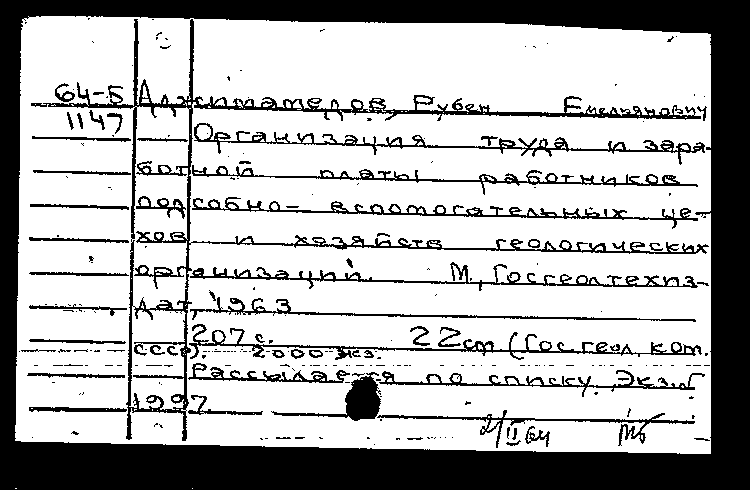 64-5 Аджимамедов, Рубен Емельянович
1147 Организация труда и зара-
ботной платы работников
подсобно- вспомогательных це-
хов и хозяйств геологических
организаций. М., Госгеолтехиз-
дат, 1963
207 с. 22см (Гос. геол. ком.
СССР). 2000 экз.
Рассылается по списку. Экз. №
1997
2/II 64